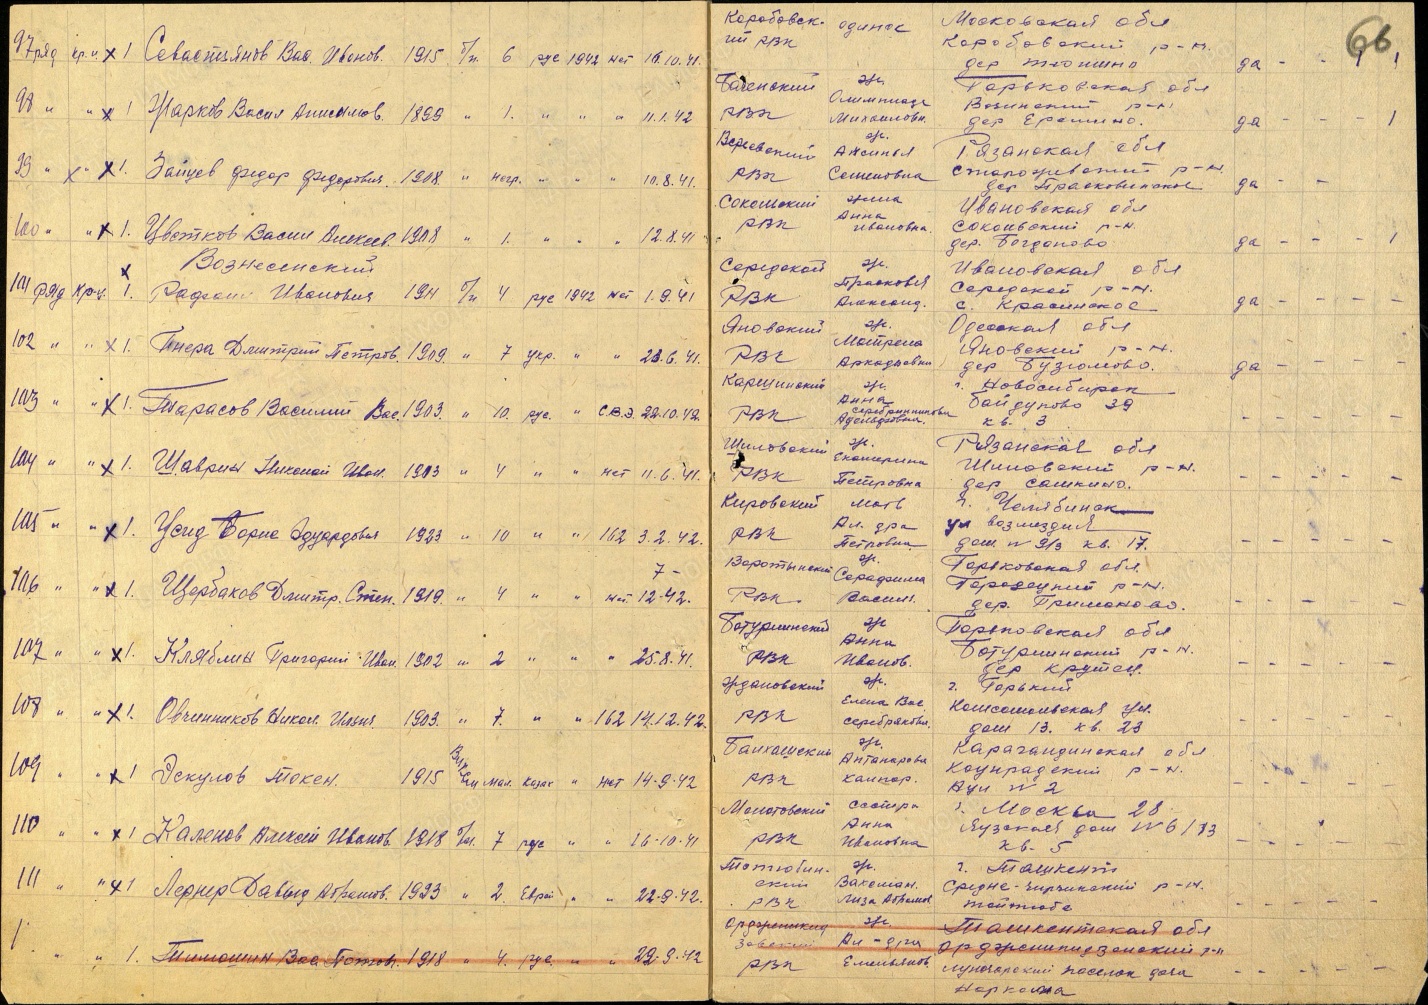 66
97 ряд кр-ц. х 1 Севастьянов Вас. Иванов. 1915 б/п. 6 рус 1942 нет 16.10.41. Коробовск- одинок Московская обл
ий РВК Коробовский р-н.
дер да - - 1 1
98 " " х 1 Жарков Васил Анисимов. 1899 " 1. " " " 11.1.42 жс. Горьковская обл
РВК Олимпиада р-н
Михайловн. дер Еремино. да - - - 1
99 " " х 1. Зайцев Федор Федорович. 1908. " негр. " " " 10.8.41. Вереевский ж. Рязанская обл
РВК Аксинья Старожиловский р-н.
Семеновна дер да - -
100 " " х 1. Цветков Васил Алексеев. 1908 " 1. " " " 12.8.41 Сокольский жина Ивановская обл
РВК Анна Сокольский р-н.
Ивановна. дер. Богданово да - - - 1
Вознесенский
101 ряд Кр-ц. х 1. Рафаил Иванович 1911 б/п 4 рус 1942 нет 1.9.41 Середской ж. Ивановская обл
РВК Прасковья Середской р-н.
Александ. с. Красинское да - - - -
102 " " х 1. Гнера Дмитрий Петров. 1909. " 7 укр. " " 23.6.41. Яновский ж. Одесская обл
РВК Матрена Яновский р-н.
Аркадьевна дер Бузиново. да -
103 " " х 1. Тарасов Василий Вас. 1903. " 10. рус. " С.В.Э. 22.10.42. Каргинский ж. г. Новосибирск
РВК Анна Серебрянникова Байдуково 39
Адельфовна. кв. 3 - - - - -
104 " " х 1. Шаврин Николай Иван. 1903 " 4 " " нет 11.6.41. Шиловский ж. Рязанская обл
РВК Екатерина Шиловский р-н.
Петровна дер Сашкино. - - - - -
105 " " х 1. Усид Борис Эдуардович 1923 " 10 " " 162 3.2.42. Кировский мать г. Челябинск
РВК Ал. дра ул возмездия
Петровна дом. № 9/3 кв. 17. - - - - -
106 " " х 1. Щербаков Дмитр. Степ. 1919. " 4 " " нет. 7-12-42. Воротынский ж. Горьковская обл.
РВК. Серафима Городецкий р-н.
Васил. дер. Примоково. - - - - -
107 " " х 1. Кляблин Григорий Иван. 1902 " 2 " " " 25.8.41. Батуринский ж Горьковская обл
РВК Анна Батуринский р-н.
Иванов. дер Крутец. - - - - -
108 " " х 1. Овчинников Никол. Ильич 1903. " 7. " " 162 14.12.42. Ждановский ж. г. Горький
РВК Елена Вас. Комсомольская ул.
Серебрякова. дом 13. кв. 23 - - - - -
109 " " х 1 Эскулов Токен. 1915 мал. Казах " нет 14-9-42 Балхашский ж. Карагандинская обл
РВК Коунрадский р-н.
Аул № 2 - - - - -
110 " " х 1 Каленов Алексей Иванов. 1918 б/п. 7 рус " " 16-10-41 Молотовский сестра г. Москва 28
РВК Анна Яузская дом № 6/83
Ивановна кв. 5 - - - -
111 " " х 1 Лернер Давыд Абрамов. 1923 " 2. Еврей " " 22-9-42. ж. г. Ташкент
ский Вахсман. Средне-Чирчикский р-н.
РВК Лиза Абрамов Тойтюбе - - - - -
1 " " 1. Тимошин Вас Петров. 1918 " 4. рус. " " 22-9-42 Орджоникид ж. Ташкентская обл
зевский Ал-дра Орджоникидзевский р-н
РВК Емельянов. Луначарский поселок дача
Наркома - - - - -